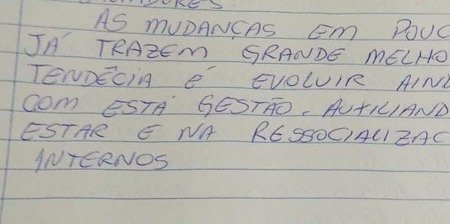 AS MUDANÇAS EM POUC
JÁ TRAZEM GRANDE MELHO
TENDÊCIA É EVOLUIR AIN
COM ESTÁ GESTÃO. AUXILIAND
ESTAR E NA RESSOCIALIZAC
INTERNOS